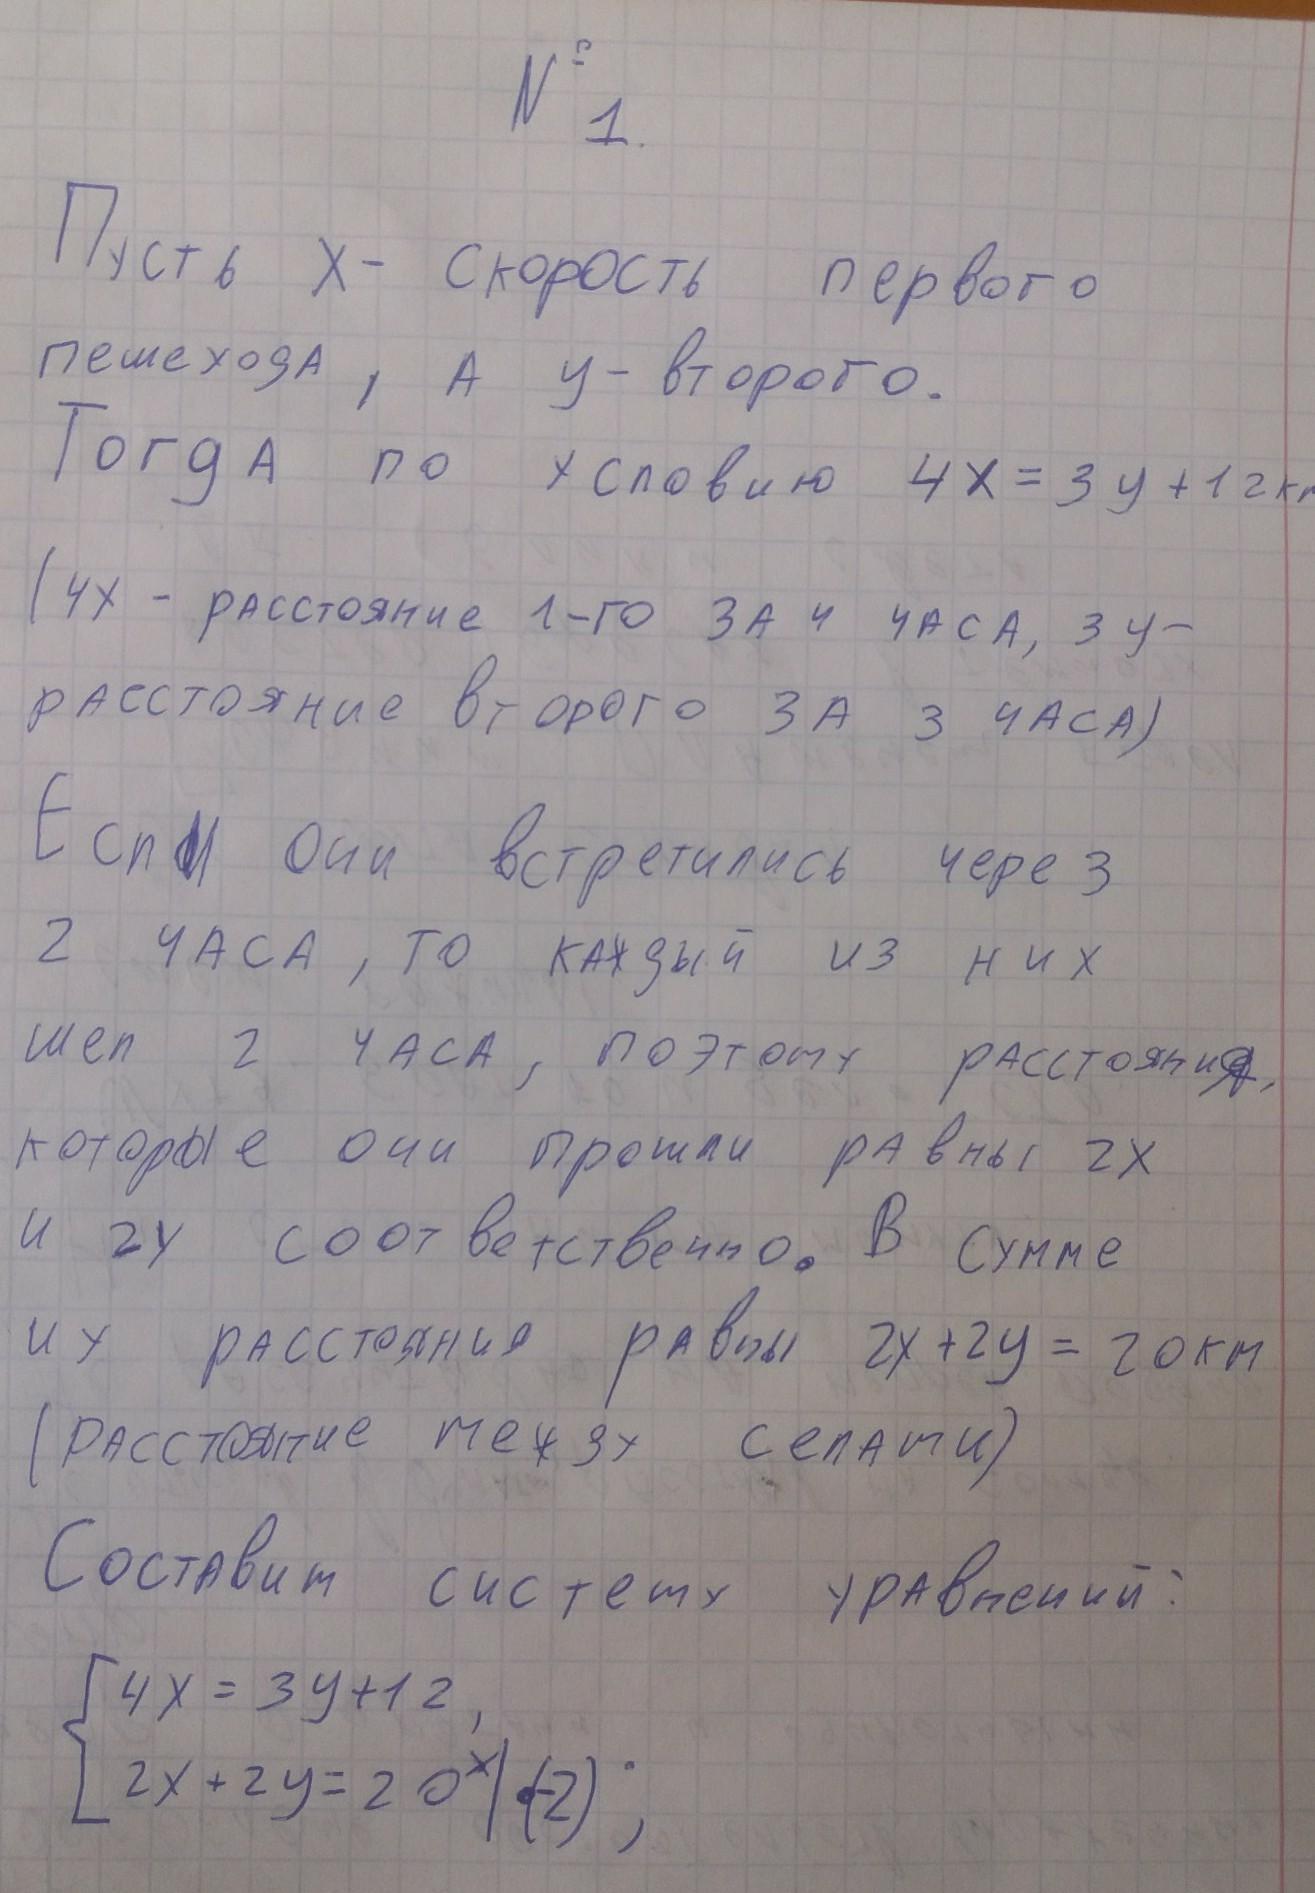 № 1.
Пусть х - скорость первого
пешехода, а у - второго.
Тогда по условию 4х = 3у + 12км
(4х - расстояние 1-го за 4 часа, 3у -
расстояние второго за 3 часа)
Если они встретились через
2 часа, то каждый из них
шел 2 часа, поэтому расстояния,
которые они прошли равны 2х
и 2у соответственно. В сумме
их расстояния равны 2х + 2у = 20км
(расстояние между селами)
Составим систему уравнений:
{ 4х = 3у + 12,
2х + 2у = 20 х|·(-2);